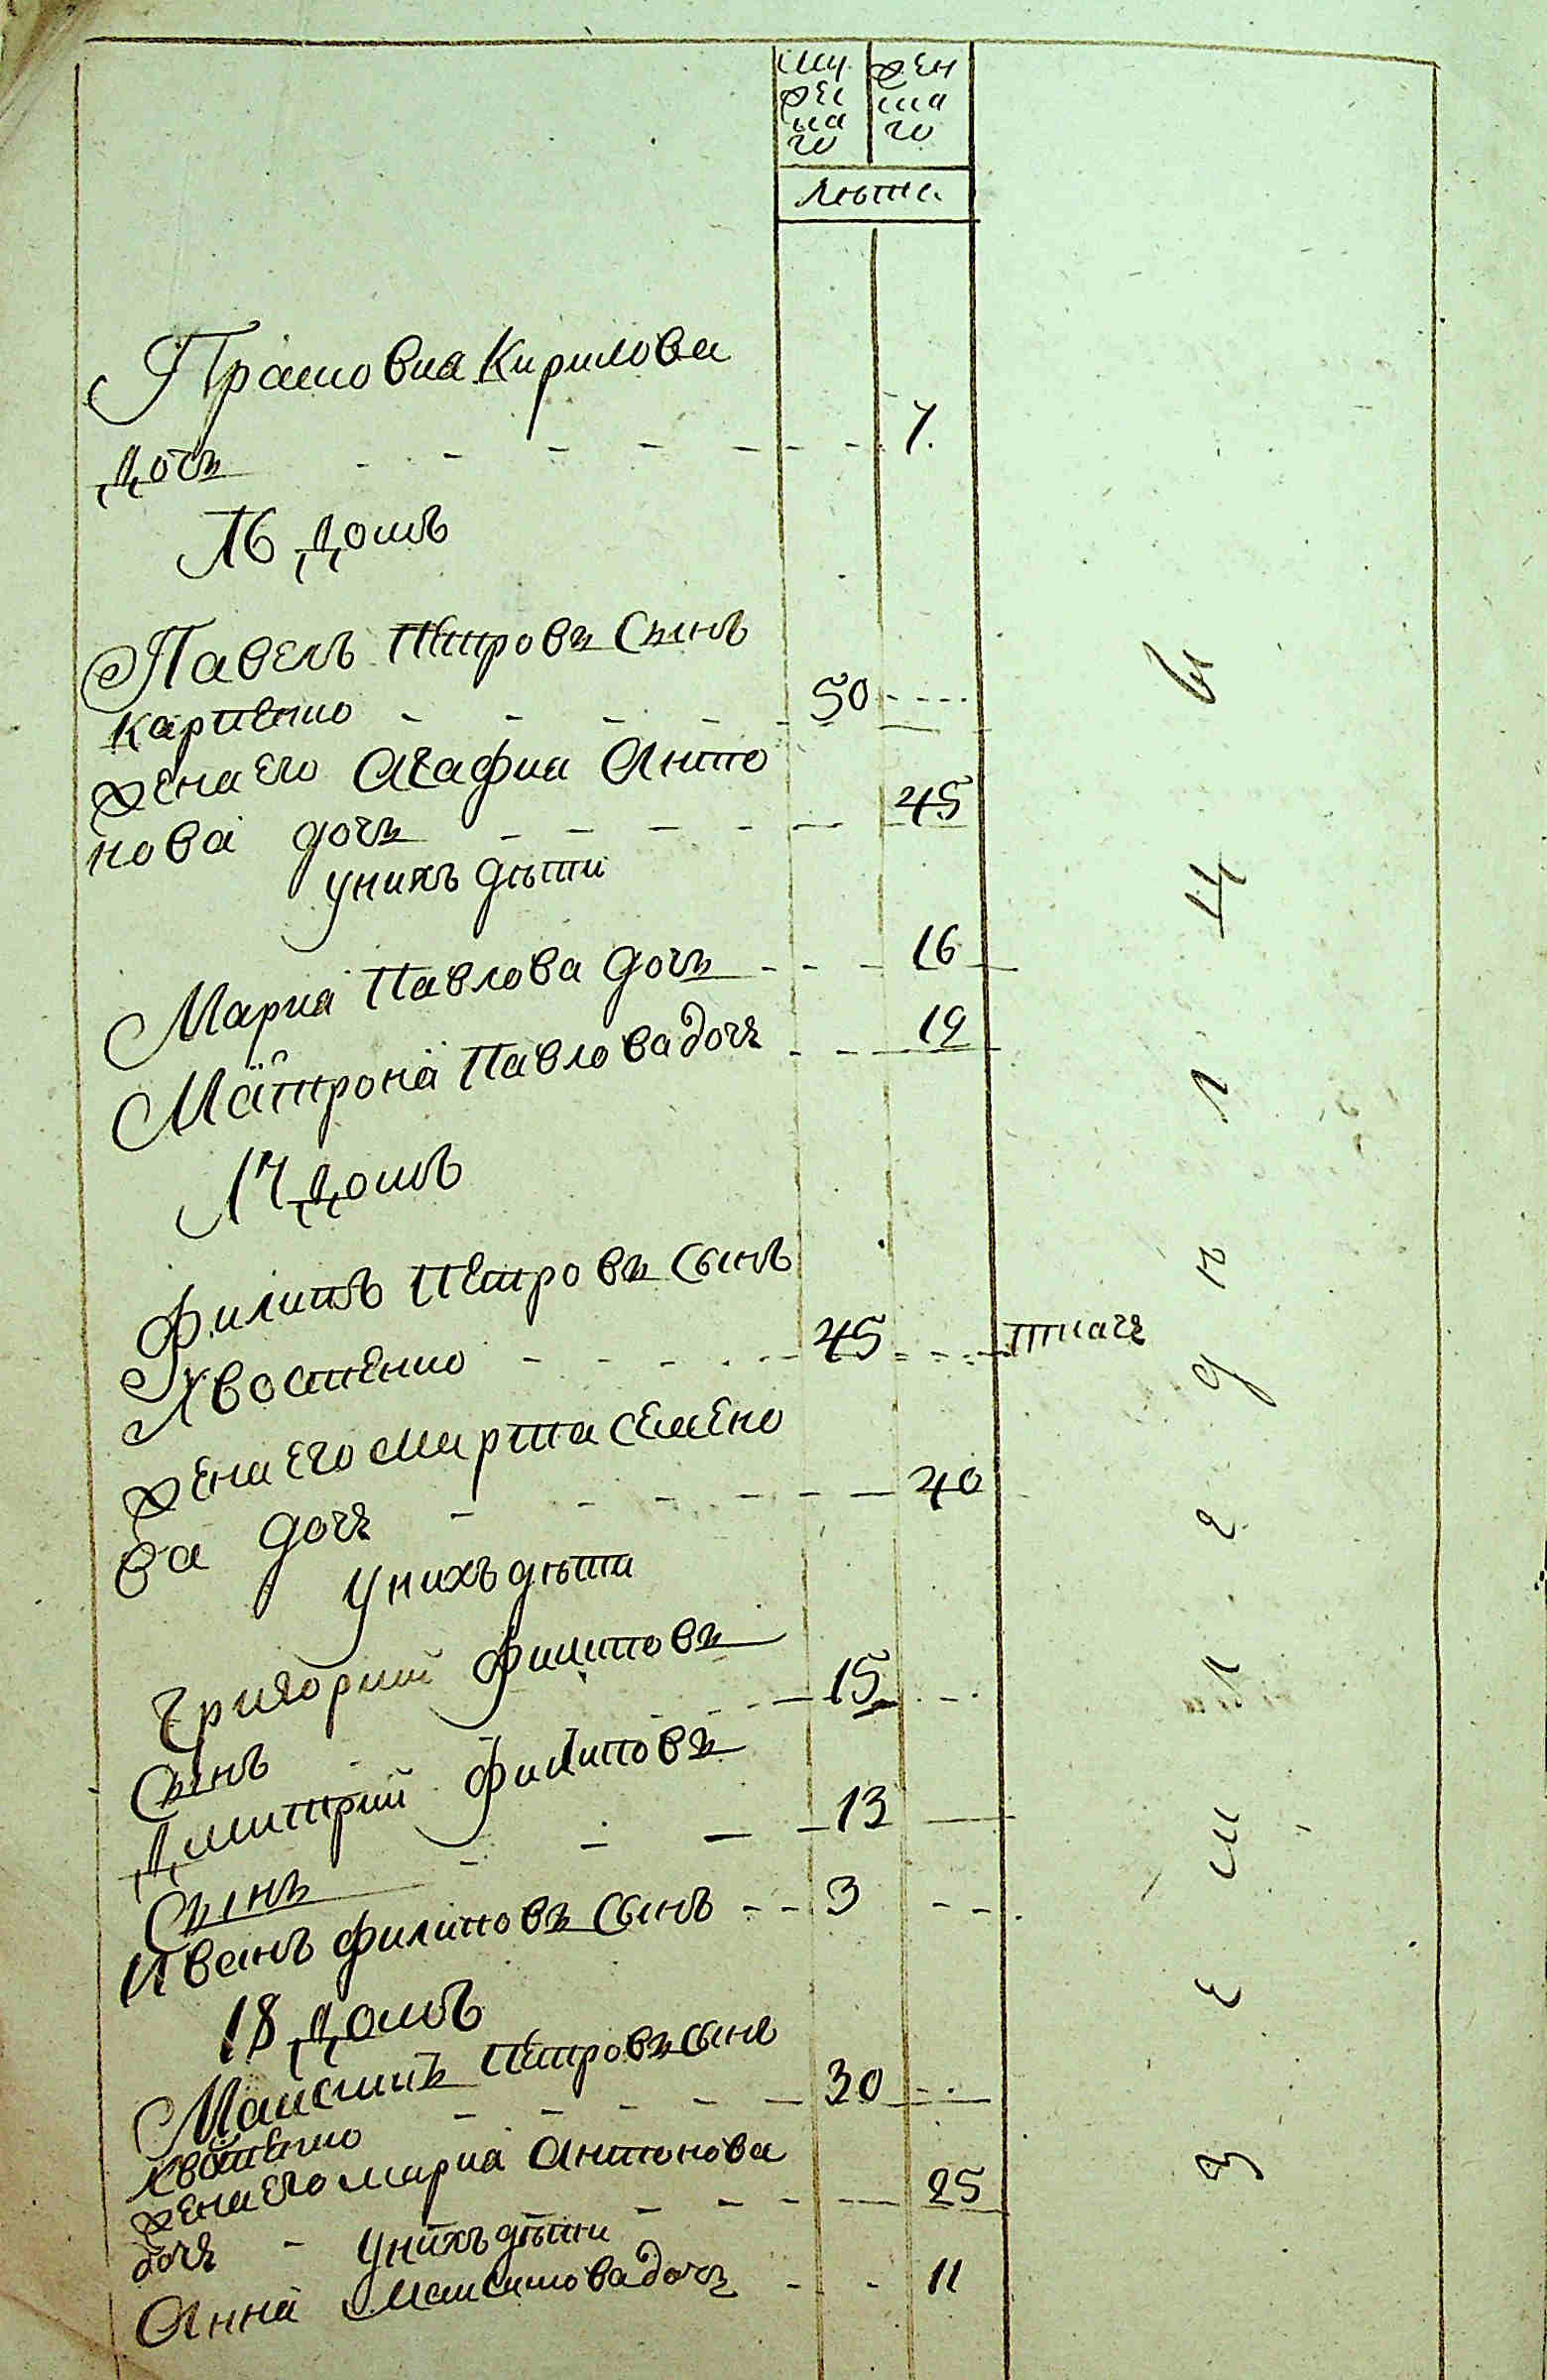 му
жес
ка
го
жен
ска
го
лѣта
Прасковиа Кирилова
дочь 7.
16 домъ
Павелъ Петровъ сынъ
Карпенко 50
жена его Агафиа Анто
нова дочь 45
у нихъ дѣти
Мариа Павлова дочь 16
Матрона Павлова дочь 19
17 домъ
Филипъ Петровъ сынъ
Хвостенко 45 ткачь
жена его Марта Семено
ва дочь 40
у нихъ дѣти
Григорий Филиповъ
сынъ 15
Димитрий Филиповъ
сынъ 13
Иванъ Филиповъ сынъ 3
18 домъ
Максимъ Петровъ сынъ
Хвостенко 30
жена его Мариа Антонова
дочь 25
у нихъ дѣти
Анна Максимова дочь 11
земледѣлцы